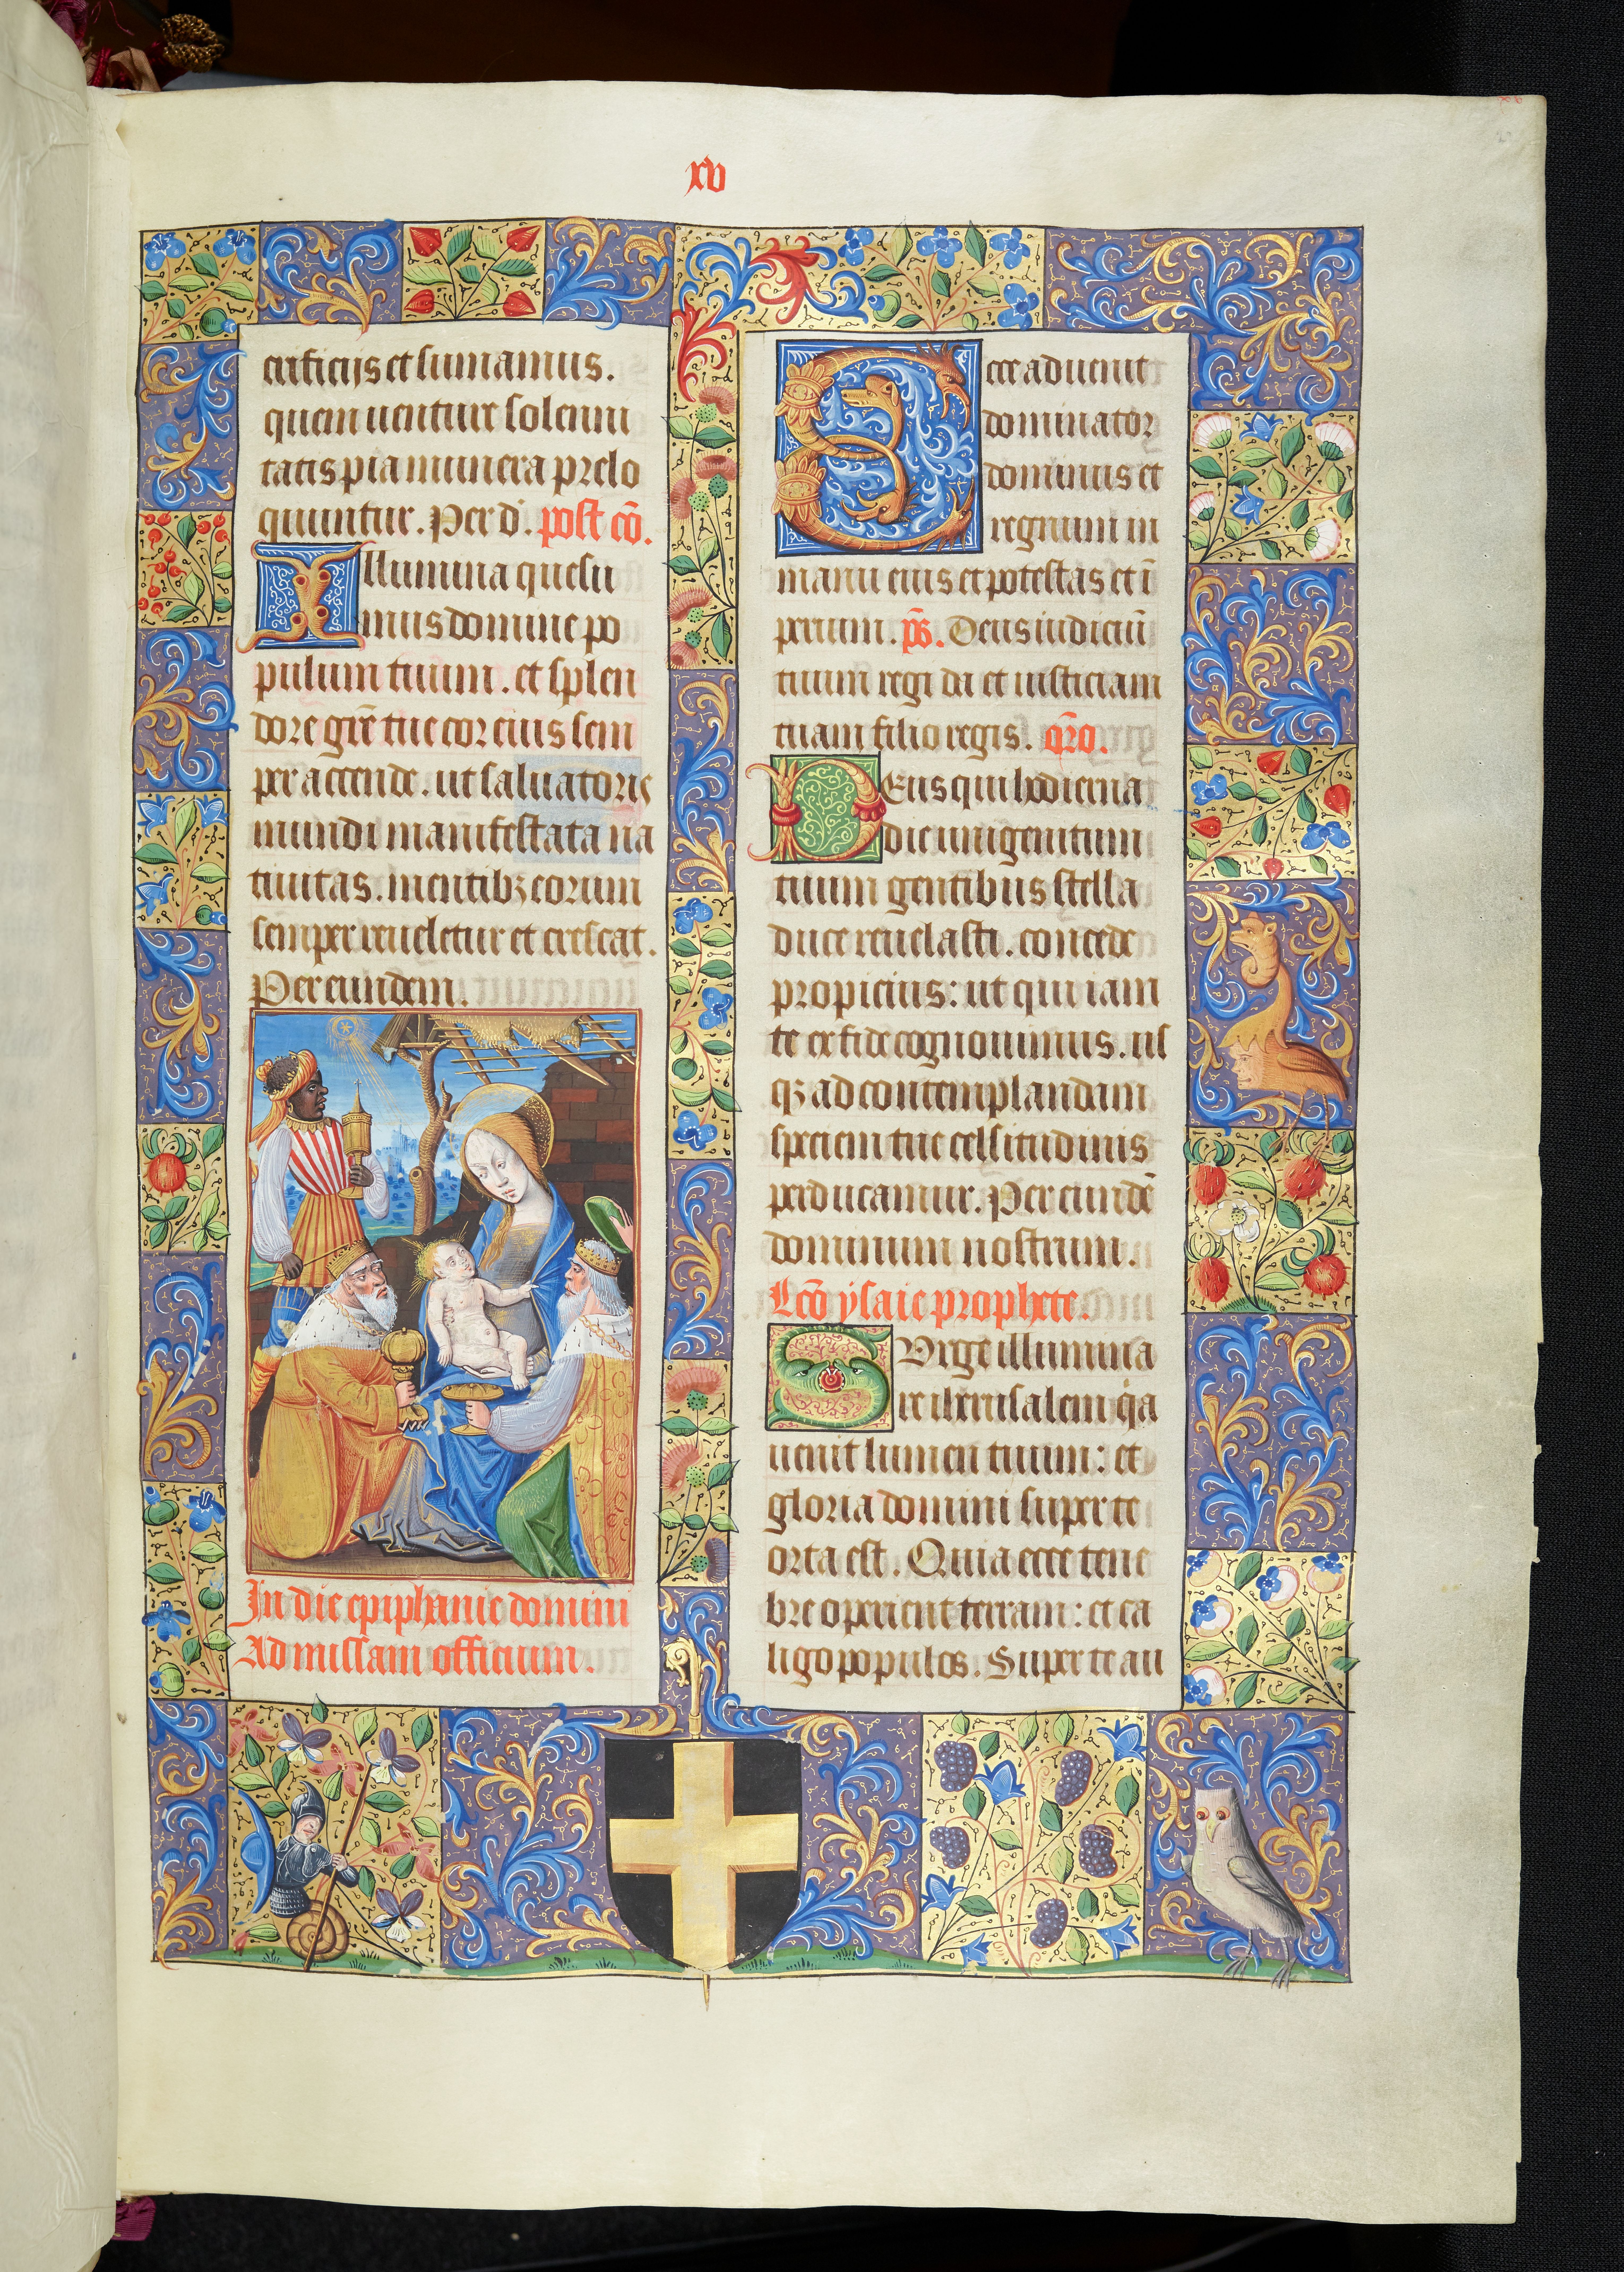 xv
crificiis et sumamus.
quem venture solenni
tatis pia munera prelo
quuntur. Per d. post cō.
Illumina quesu
mus domine po
pulum tuum. et splen
dore grē tue cor eius sem
per accende. ut salvatoris
mundi manifestata na
tivitas. mentibꝫ eorum
semper reveletur et crescat.
Per eundem.
In die epiphanie domini
Ad missam officium.
Ecce advenit
dominator
dominus et
regnum in
manu eius et potestas et ī
perium. ps̄. Deus iudiciū
tuum regi da et iusticiam
tuam filio regis. orō.
Deus qui hodierna
die unigenitum
tuum gentibus stella
duce revelasti. concede
propicius: ut qui iam
te ex fide cognovimus. us
qꝫ ad contemplandam
speciem tue celsitudinis
perducamur. Per eundē
dominum nostrum.
Lcō ysaie prophete.
Surge illumina
re iherusalem qa
venit lumen tuum: et
gloria domini super te
orta est. Quia ecce tene
bre operient terram: et ca
ligo populos. Super te au